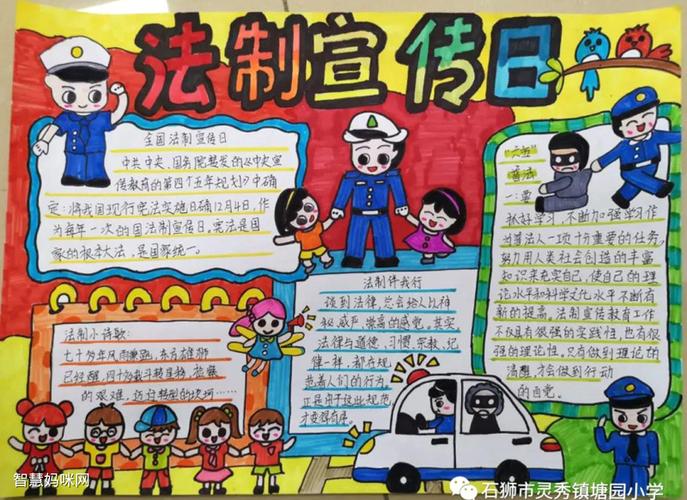 法制宣传日
全国法制宣传日
中共中央、国务院转发的《中央宣
传教育的第四个五年规划》中确
定:将我国现行宪法实施日确12月4日,作
为每年一次的国法制宣传日。宪法是国
家的根本大法,是国家统一。
法制小诗歌:
七十多年风雨兼
已经醒,四十
的艰难,
法制伴我行
谈到法律,总会给人以神
秘、威严、崇高的感觉。其实,
法律与道德、习惯、宗教、纪
律一样,都在规
范着人们的行为,
正是由于这些规范
才变得有序。
"六五"
普法
一:要
抓好学习,不断加强学习作
为普法人一项十分重要的任务。
努力用人类社会创造的丰富
知识来充实自己,使自己的理
论水平和科学文化水平不断有
新的提高。法制宣传教育工作
不仅具有很强的实践性,也有很
强的理论性。只有做到理论的
清醒,才会做到行动
的自觉。
智慧妈咪网
石狮市灵秀镇塘园小学